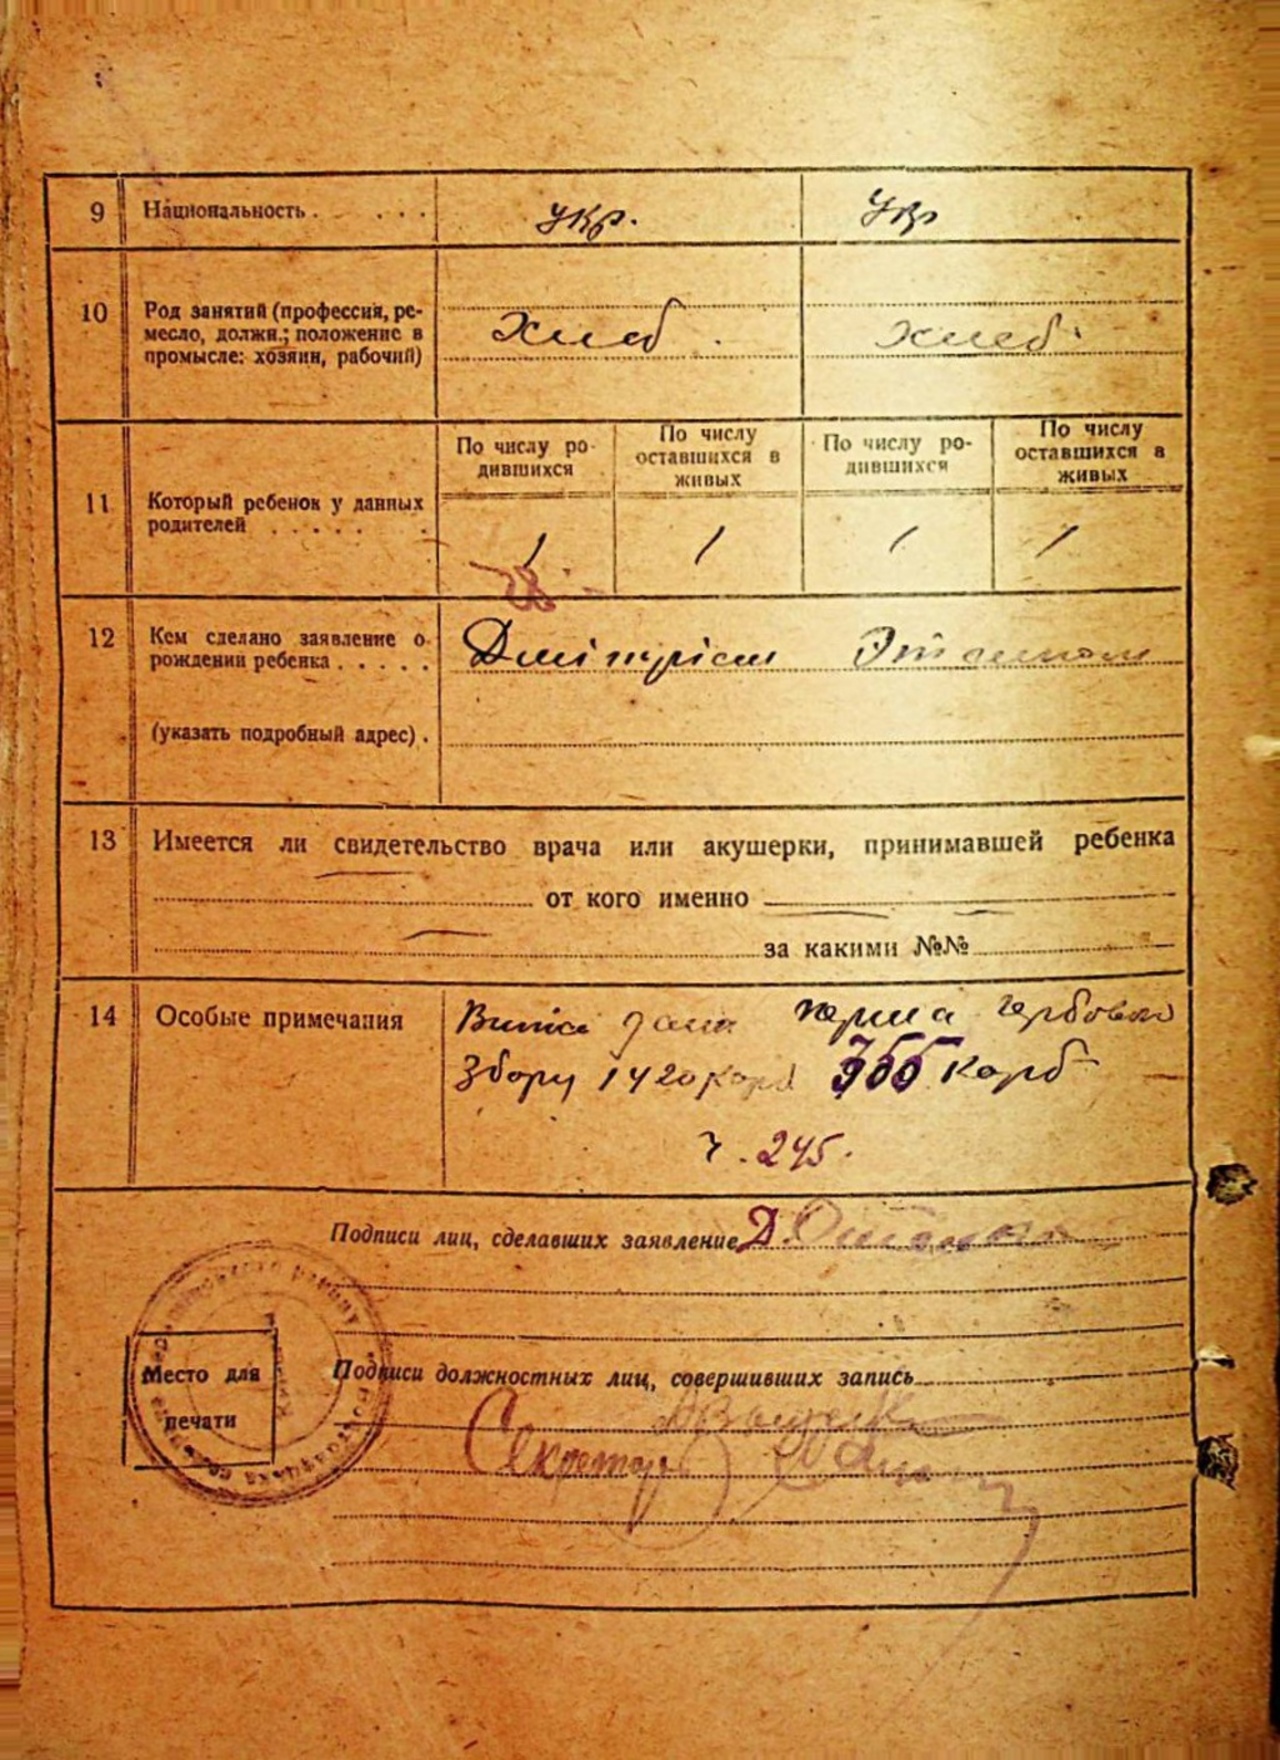 9 Национальность . . . . . укр. Укр
10 Род занятий (профессия, ре-
месло, должн.; положение в
промысле: хозяин, рабочий)
Хлеб . Хлеб.
По числу ро-
дившихся
По числу
оставшихся в
живых
По числу ро-
дившихся
По числу
оставшихся в
живых
11 Который ребенок у данных
родителей . . . . . .
1 1 1 1
12 Кем сделано заявление о
рождении ребенка . . . . .
(указать подробный адрес) .
13 Имеется ли свидетельство врача или акушерки, принимавшей ребенка
от кого именно
за какими №№
14 Особые примечания
Збору 1420 карб 355 карб
ч. 245.
Подписи лиц, сделавших заявление Д.
Подписи должностных лиц, совершивших запись
Место для
печати
Секретар